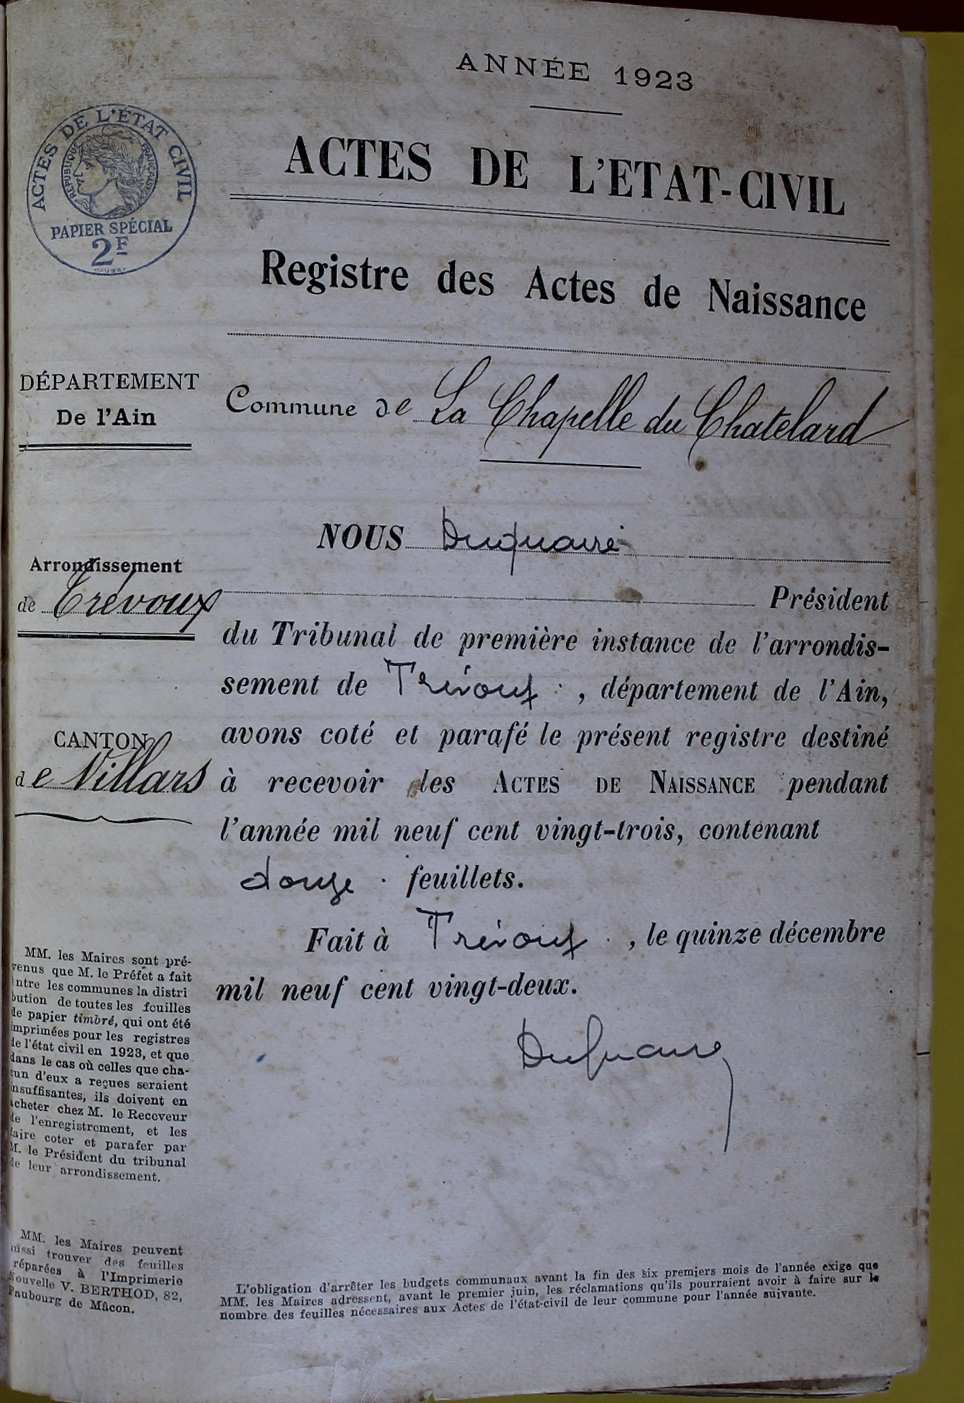 ANNÉE 1923
ACTES DE L'ÉTAT CIVIL
RÉPUBLIQUE FRANÇAISE
PAPIER SPÉCIAL
2F
ACTES DE L'ETAT-CIVIL
Registre des Actes de Naissance
DÉPARTEMENT
De l'Ain
Commune de La Chapelle du Chatelard
Arrondissement
de Trévoux
CANTON
de Villars
NOUS Duquaire
Président
du Tribunal de première instance de l'arrondis-
sement de Trévoux, département de l'Ain,
avons coté et parafé le présent registre destiné
à recevoir les ACTES DE NAISSANCE pendant
l'année mil neuf cent vingt-trois, contenant
douze feuillets.
Fait à Trévoux, le quinze décembre
mil neuf cent vingt-deux.
Duquaire
MM. les Maires sont pré-
venus que M. le Préfet a fait
entre les communes la distri
bution de toutes les feuilles
de papier timbré, qui ont été
imprimées pour les registres
de l'état civil en 1923, et que
dans le cas où celles que cha-
cun d'eux a reçues seraient
insuffisantes, ils doivent en
acheter chez M. le Receveur
de l'enregistrement, et les
faire coter et parafer par
M. le Président du tribunal
de leur arrondissement.
MM. les Maires peuvent
aussi trouver des feuilles
préparées à l'Imprimerie
Nouvelle V. BERTHOD, 82,
Faubourg de Mâcon.
L'obligation d'arrêter les budgets communaux avant la fin des six premiers mois de l'année exige que
MM. les Maires adressent, avant le premier juin, les réclamations qu'ils pourraient avoir à faire sur le
nombre des feuilles nécessaires aux Actes de l'état-civil de leur commune pour l'année suivante.